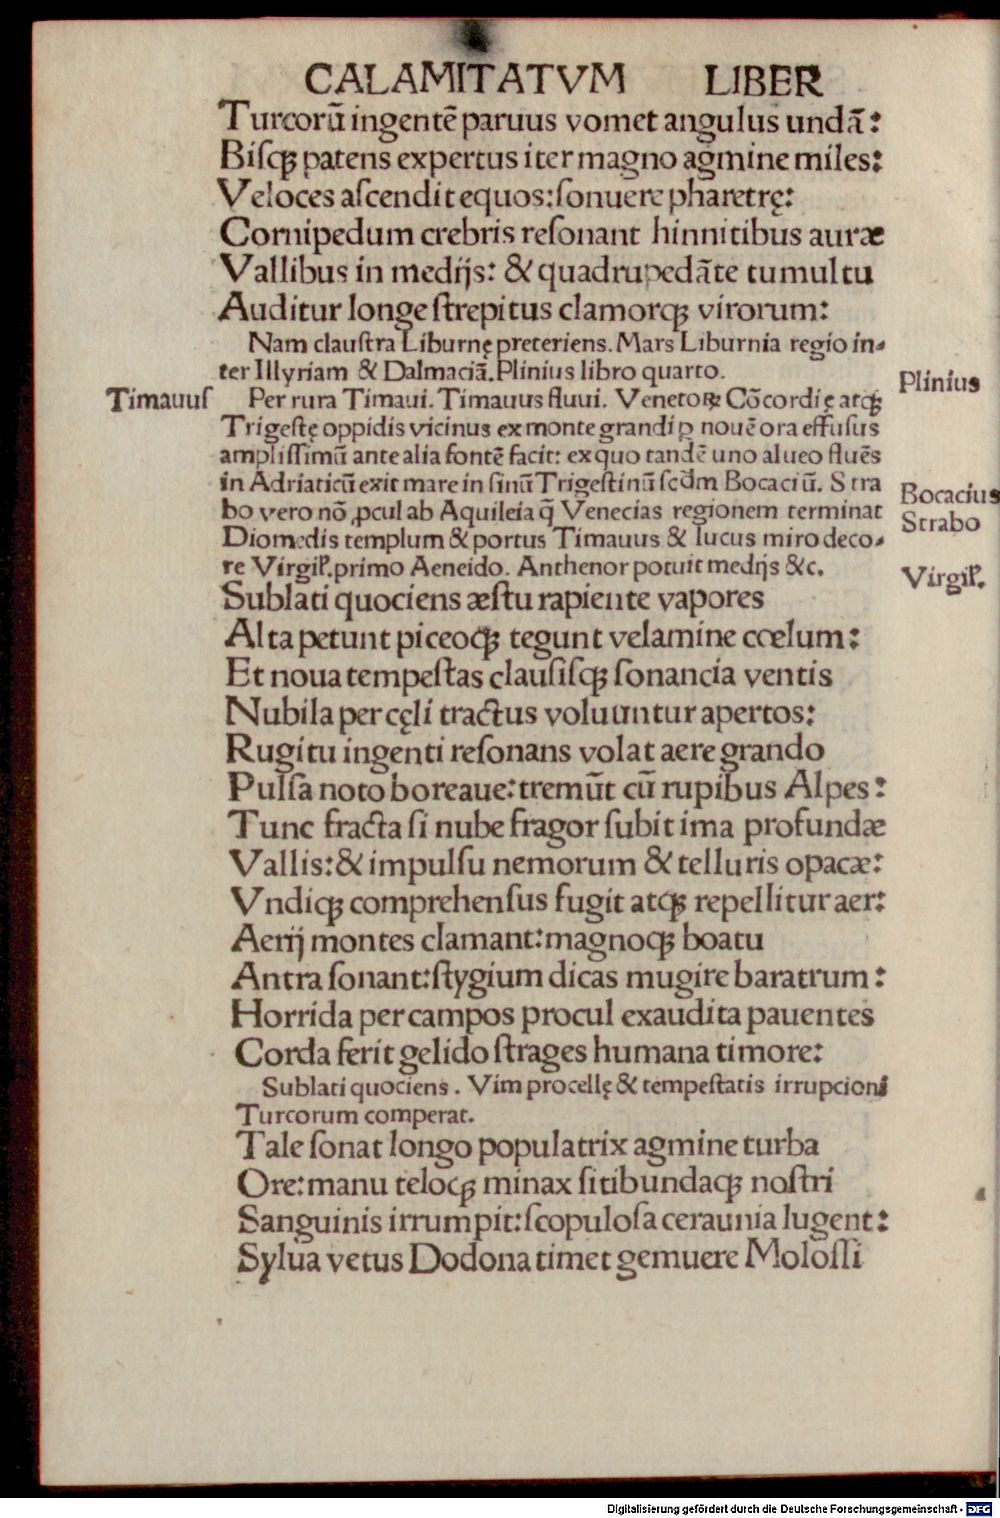 CALAMITATVM LIBER
Turcorū ingentē paruus vomet angulus undā:
Biſqꝫ patens expertus iter magno agmine miles:
Veloces aſcendit equos: ſonuere pharetrę:
Cornipedum crebris reſonant hinnitibus auræ
Vallibus in medijs: & quadrupedāte tumultu
Auditur longe ſtrepitus clamorqꝫ virorum:
Nam clauſtra Liburnę preteriens. Mars Liburnia regio in-
ter Illyriam & Dalmaciā. Plinius libro quarto.
Plinius
Timauuſ
Per rura Timaui. Timauus fluui. Venetoꝝ Cōcordię atqꝫ
Trigeſtę oppidis vicinus ex monte grandi ꝑ nouē ora effuſus
ampliſſimū ante alia fontē facit: ex quo tandē uno alueo fluēs
in Adriaticū exit mare in ſinū Trigeſtinū ſcd̄m Bocaciū. Stra
Bocacius
bo vero nō ꝓcul ab Aquileia q̄ Venecias regionem terminat
Strabo
Diomedis templum & portus Timauus & lucus miro deco-
re Virgil̕. primo Aeneido. Anthenor potuit medijs &c.
Virgil̕.
Sublati quociens æſtu rapiente vapores
Alta petunt piceoqꝫ tegunt velamine cœlum:
Et noua tempeſtas clauſiſqꝫ ſonancia ventis
Nubila per cęli tractus voluuntur apertos:
Rugitu ingenti reſonans volat aere grando
Pulſa noto boreaue: tremūt cū rupibus Alpes:
Tunc fracta ſi nube fragor ſubit ima profundæ
Vallis: & impulſu nemorum & telluris opacæ:
Vndiqꝫ comprehenſus fugit atqꝫ repellitur aer:
Aerij montes clamant: magnoqꝫ boatu
Antra ſonant: ſtygium dicas mugire baratrum:
Horrida per campos procul exaudita pauentes
Corda ferit gelido ſtrages humana timore:
Sublati quociens. Vim procellę & tempeſtatis irrupcioni
Turcorum comperat.
Tale ſonat longo populatrix agmine turba
Ore: manu teloqꝫ minax ſitibundaqꝫ noſtri
Sanguinis irrumpit: ſcopuloſa ceraunia lugent:
Sylua vetus Dodona timet gemuere Moloſſi
Digitalisierung gefördert durch die Deutsche Forschungsgemeinschaft - DFG